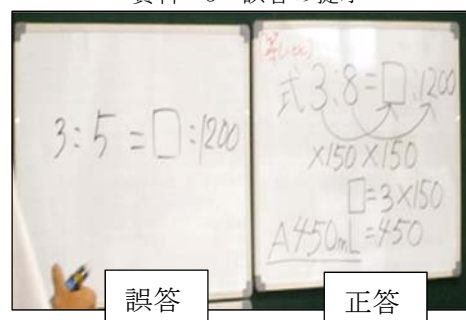 3:5=□:1200
式 3:8=□:1200
×150 ×150
□=3×150
A450mL=450
誤答
正答